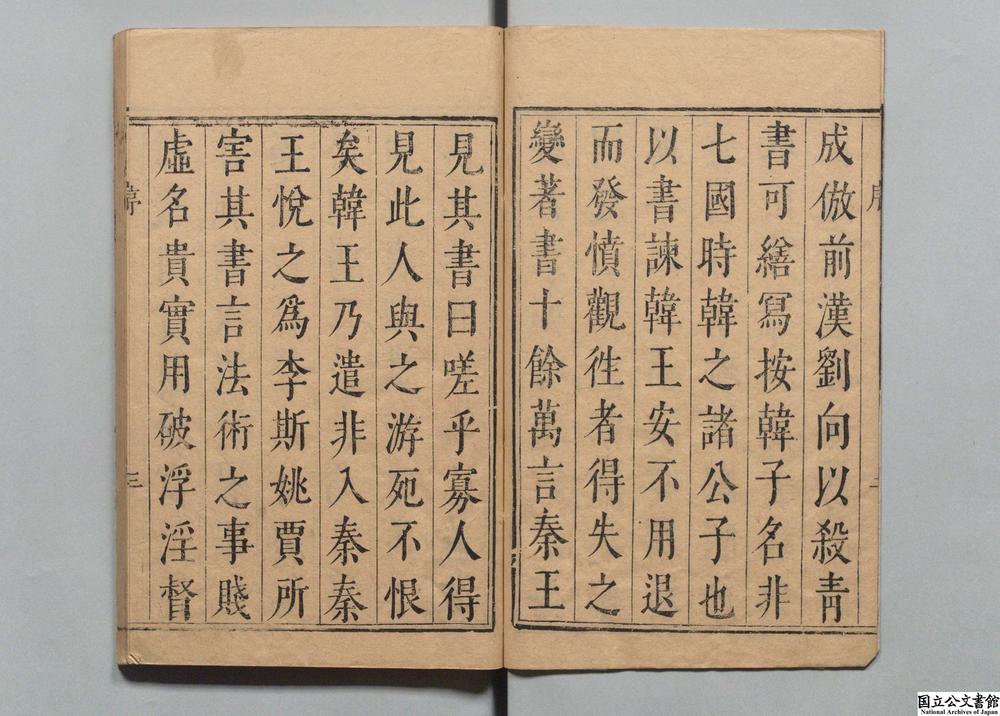 成倣前漢劉向以殺青
書可繕寫按韓子名非
七國時韓之諸公子也
以書諫韓王安不用退
而發憤觀徃者得失之
變著書十餘萬言秦王
見其書曰嗟乎寡人得
見此人與之游死不恨
矣韓王乃遣非入秦秦
王悅之爲李斯姚賈所
害其書言法術之事賤
虛名貴實用破浮淫督
序
三
国立公文書館
National Archives of Japan